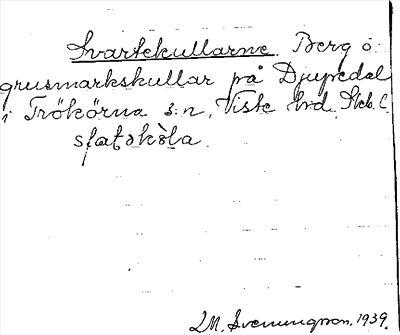 Svartekullarne. Berg o.
grusmarkskullar på Djupedal
i Trökörna s:n, Viste hrd.
sfatəkəla
M. Svenungsson. 1939.